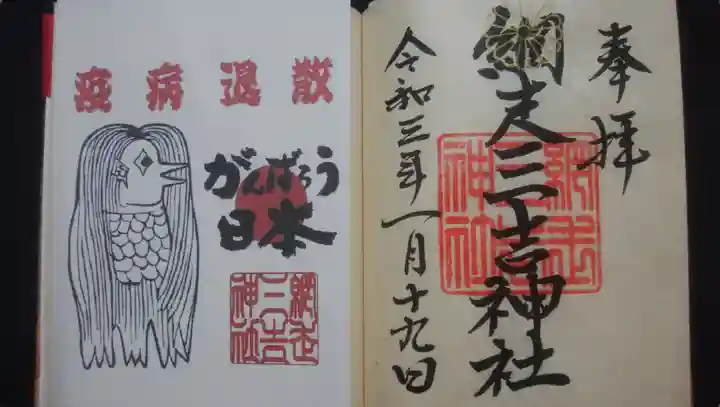 奉拝
網走三吉神社
令和三年一月十九日
網走
三吉
神社
疫病退散
がんばろう
日本
網走
三吉
神社